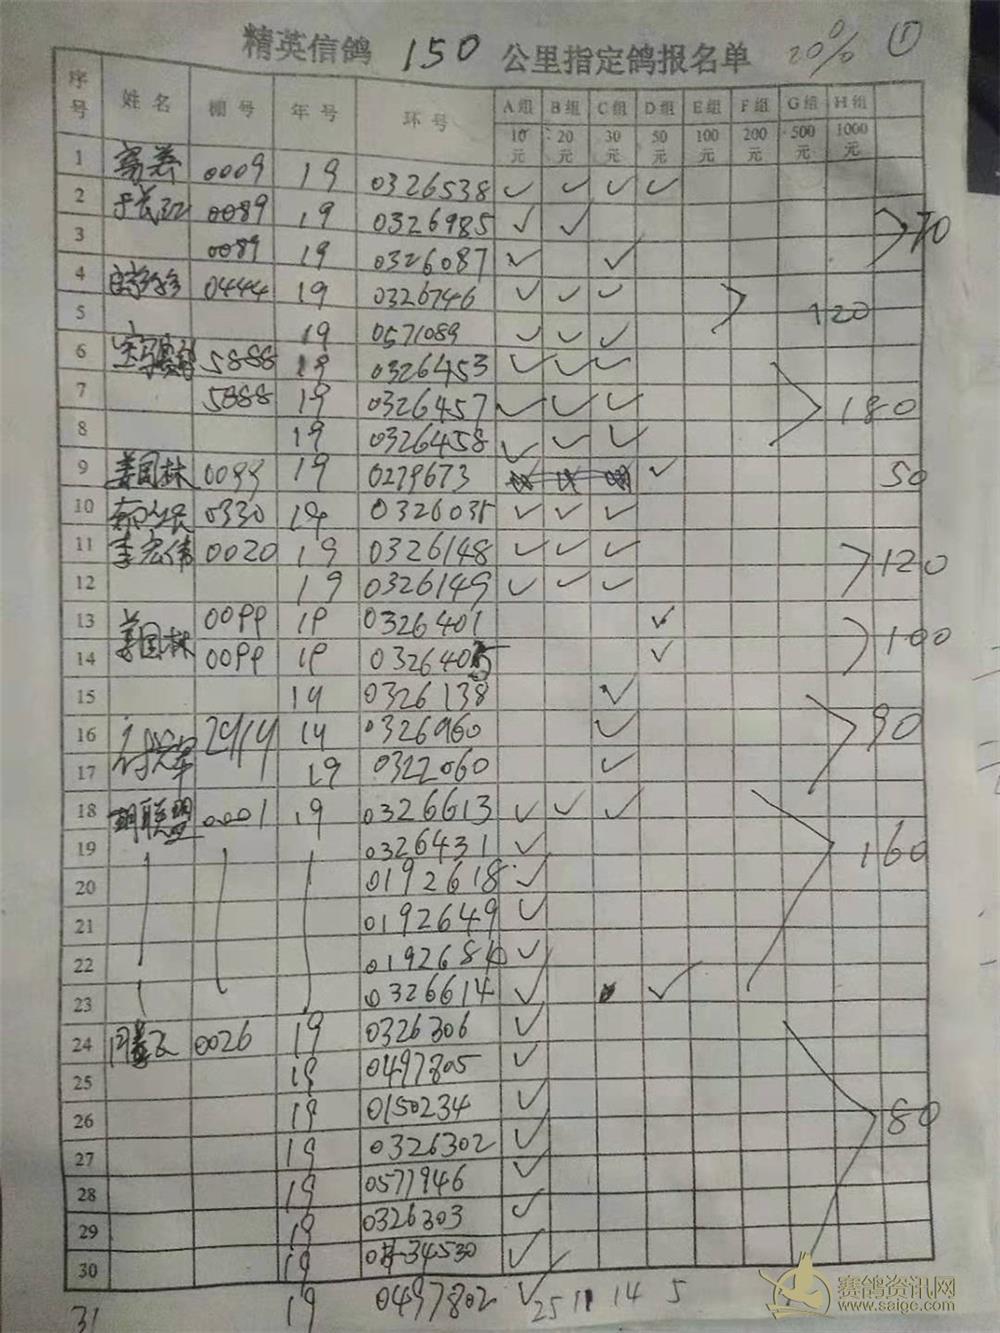 精英信鸽 150 公里指定鸽报名单 20% ①
序号 姓名 棚号 年号 环号 A组 B组 C组 D组 E组 F组 G组 H组
10元 20元 30元 50元 100元 200元 500元 1000元
1 0009 19 0326538 ✓ ✓ ✓ ✓
2 0089 19 0326985 ✓ ✓ 70
3 0089 19 0326087 ✓ ✓
4 0444 19 0326746 ✓ ✓ ✓
5 19 0571089 ✓ ✓ ✓ 120
6 5888 19 0326453 ✓ ✓ ✓
7 5888 19 0326457 ✓ ✓ ✓ 180
8 19 0326458 ✓ ✓ ✓
9 姜国林 0099 19 0279673 ✓ 50
10 0330 19 0326035 ✓ ✓ ✓
11 李宏伟 0020 19 0326148 ✓ ✓ ✓ 120
12 19 0326149 ✓ ✓ ✓
13 姜国林 0099 19 0326401 ✓ 100
14 0099 19 0326405 ✓
15 19 0326138 ✓
16 2919 19 0326960 ✓ 90
17 19 0322060 ✓
18 胡联盟 0001 19 0326613 ✓ ✓ ✓
19 0326431 ✓ 160
20 0192618 ✓
21 0192649 ✓
22 0192684 ✓
23 0326614 ✓ ✓
24 0026 19 0326306 ✓
25 19 0497805 ✓
26 19 0150234 ✓ 80
27 19 0326302 ✓
28 19 0577946 ✓
29 19 0326303 ✓
30 19 ✓
31 19 0497802 ✓ 25 11 14 5
赛鸽资讯网
www.saige.com